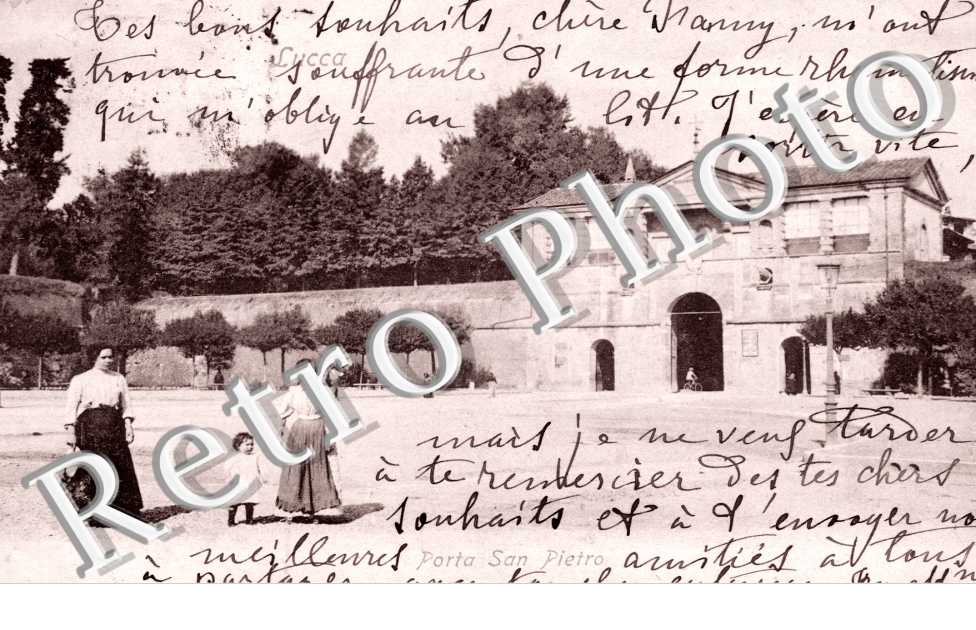 Tes bons souhaits, chère Nanny, m'ont
Lucca
trouvée souffrante d'une forme rhumatism
qui m'oblige au lit. J'espère en
sortir vite,
Retro Photo
mais je ne veux tarder
à te remercier des tes chers
souhaits et à t'envoyer no
meilleures amitiés à tous
Porta San Pietro
à partager